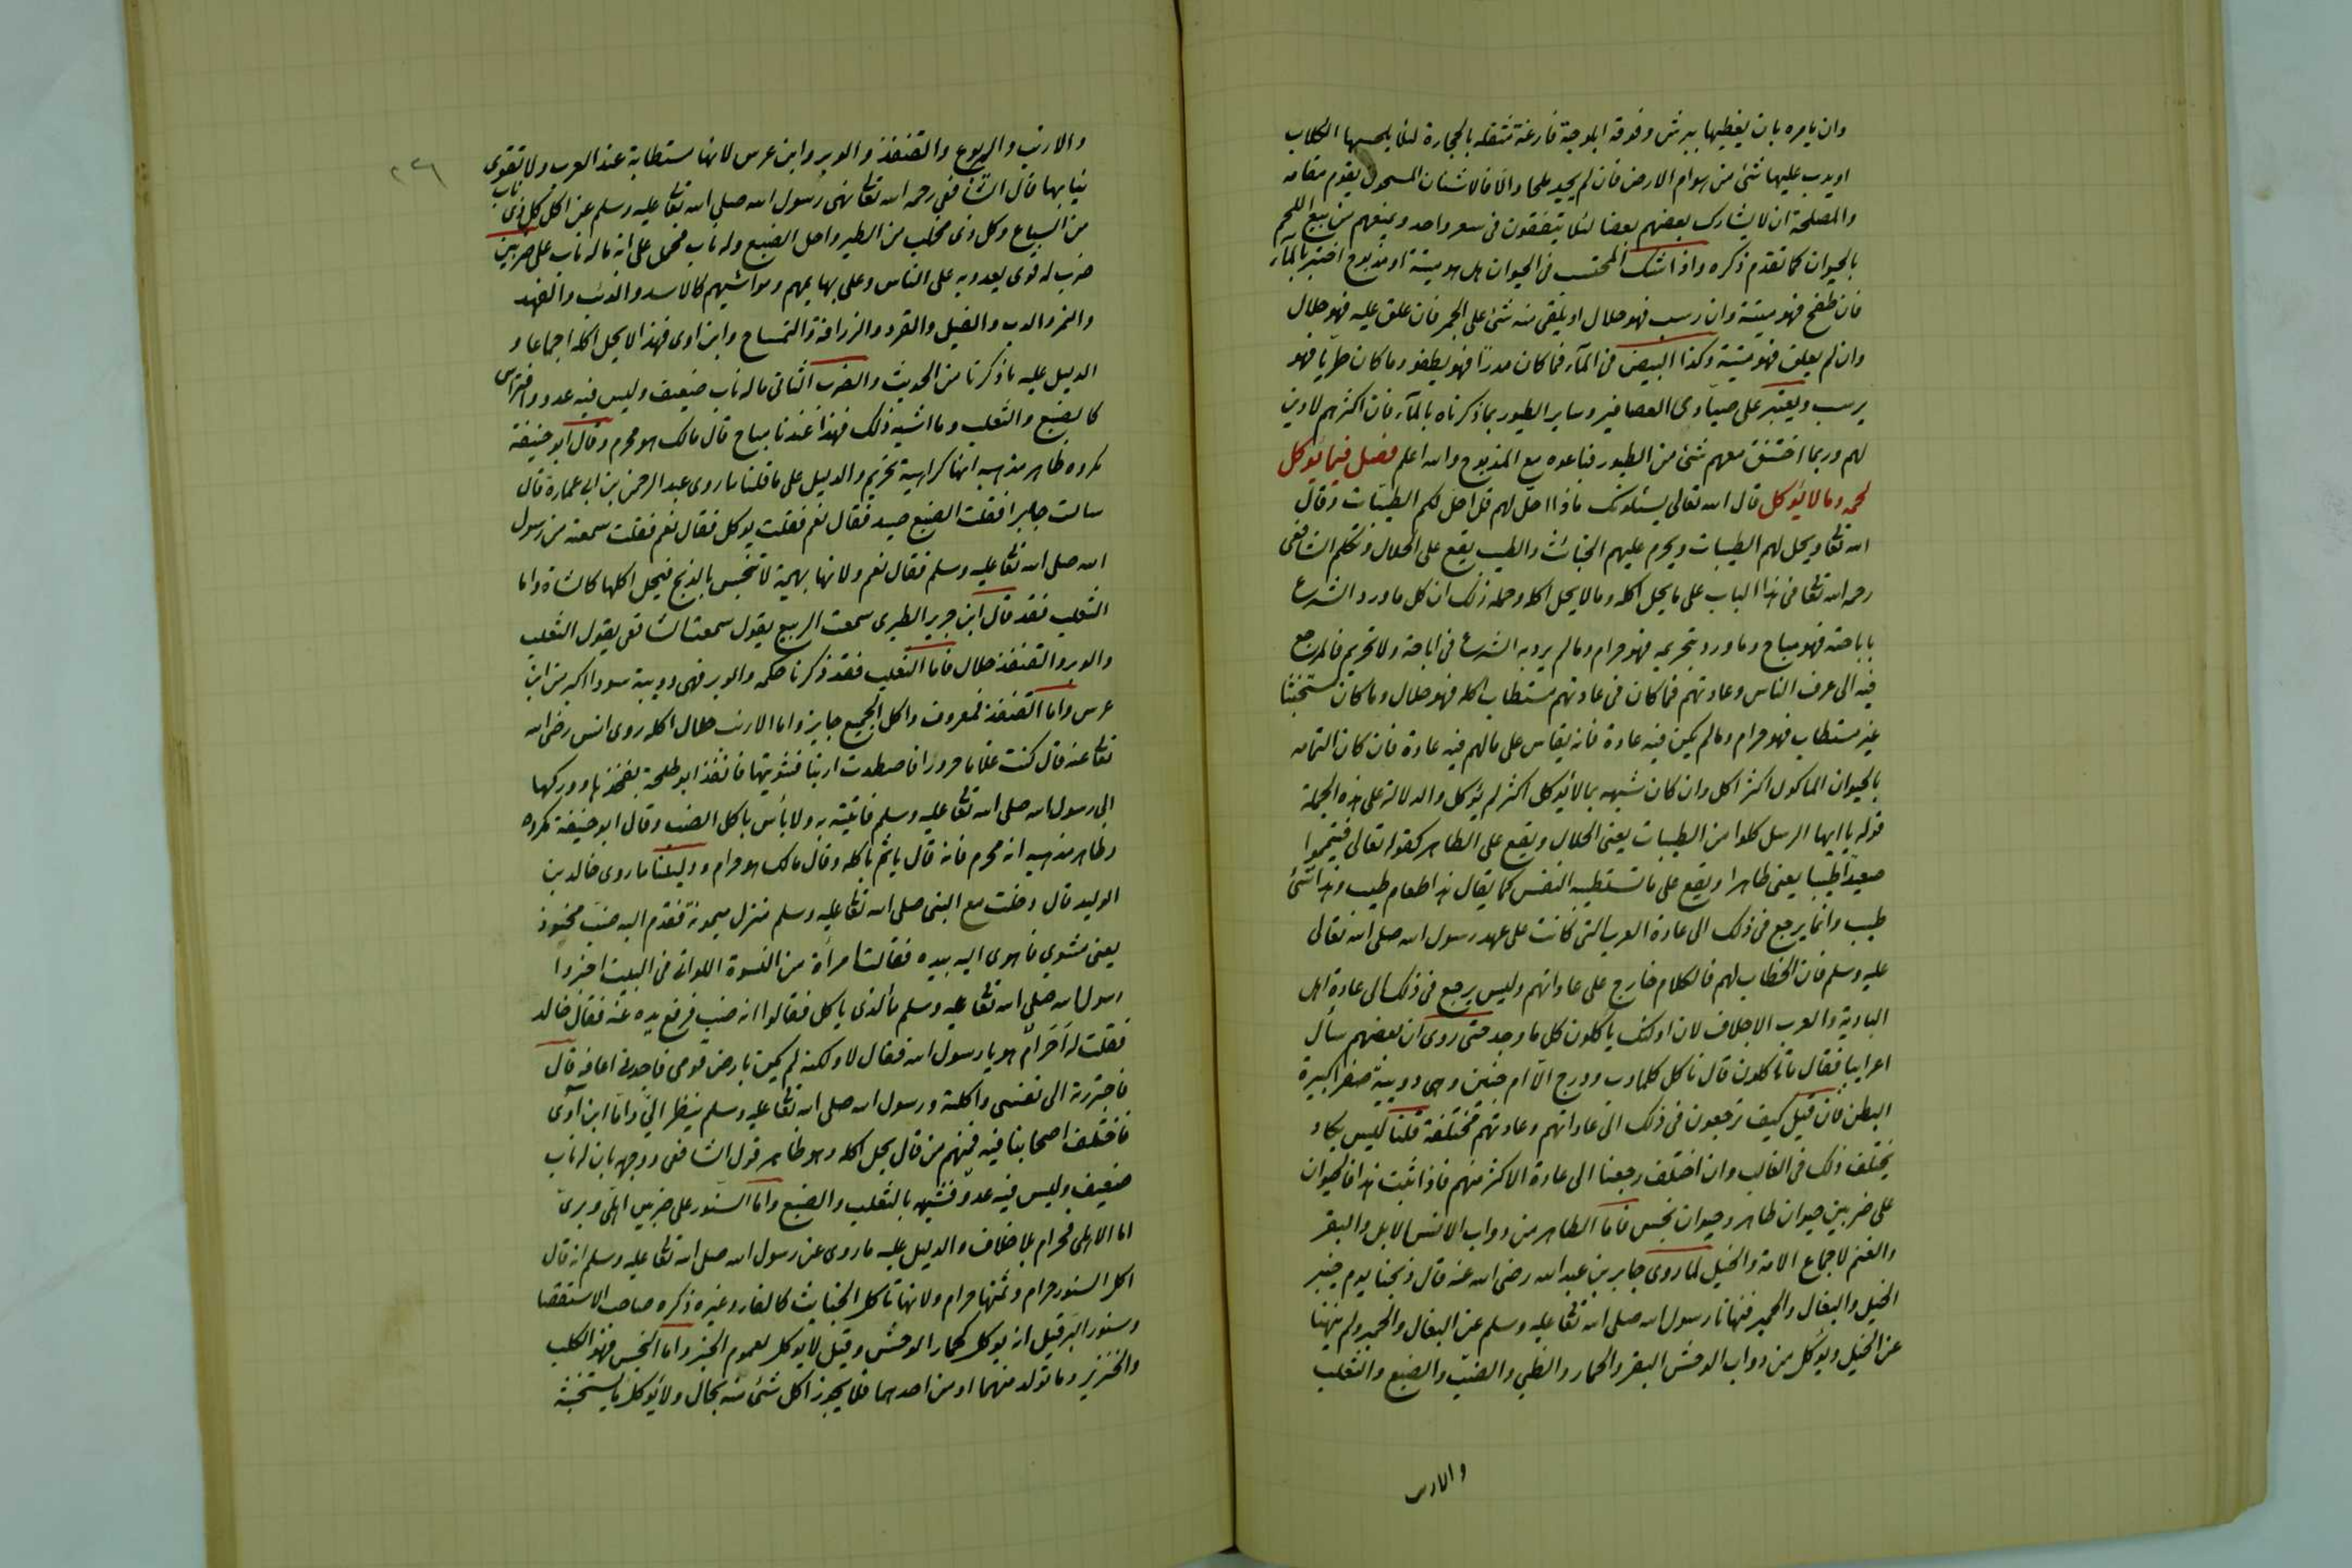 وان يامره بان يغطيها ببرش وفوقه ابلوجة فارغة مثقله بالحجارة لئلا يلحسها الكلاب
او يدب عليها شئ من هوام الارض فان لم يجد ملحا والا فالاشنان المسحوق يقوم مقامه
والمصلحة ان لا يشارك بعضهم بعضا لئلا يتفقون فى سعر واحد ويمنعهم من بيع اللحم
بالحيوان كما تقدم ذكره واذا شك المحتسب فى الحيوان هل هو ميتة او مذبوح اختبر بالمآء
فان طفح فهو ميتة وان رسب فهو حلال او يلقى منه شئ على الجمر فان علق عليه فهو حلال
وان لم يعلق فهو ميتة وكذا البيض فى المآء فما كان مدرًا فهو يطفو وما كان طريا فهو
يرسب ويعتبر على صيادى العصافير وساير الطيور بما ذكرناه بالمآء فان اكثرهم لا دين
لهم وربما اختنق معهم شئ من الطيور فباعوه مع المذبوح والله اعلم فصل فيما يؤكل
لحمه وما لا يؤكل قال الله تعالى يسئلونك ماذا احل لهم قل احل لكم الطيبات وقال
الله تعا ويحل لهم الطيبات ويحرم عليهم الخبائث والطيب يقع على الحلال وتكلم الشافعى
رحمه الله تعا فى هذا الباب على ما يحل اكله وما لا يحل اكله وجمله ذلك ان كل ما ورد الشرع
باباحته فهو مباح وما ورد بتحريمه فهو حرام وما لم يرد به الشرع فى اباحة ولا تحريم فالمرجع
فيه الى عرف الناس وعادتهم فما كان فى عادتهم مستطاب اكله فهو حلال وما كان مستخبثا
غير مستطاب فهو حرام وما لم يكن فيه عادة فانه يقاس على ما لهم فيه عادة فان كان التمامه
بالحيوان الماكول اكثر اكل وان كان شبهه بما لا يؤكل اكثر لم يؤكل والدلالة على هذه الجملة
قوله يا ايها الرسل كلوا من الطيبات يعنى الحلال ويقع على الطاهر كقوله تعالى فتيمموا
صعيدًا طيبا يعنى طاهرا ويقع على ما تستطيبه النفس كما يقال هذا طعام طيب وهذا شئ
طيب وانما يرجع فى ذلك الى عادة العرب التى كانت على عهد رسول الله صلى الله تعالى
عليه وسلم فان الخطاب لهم فالكلام خارج على عاداتهم وليس يرجع فى ذلك الى عادة اهل
البادية والعرب الاجلاف لان اولئك ياكلون كل ما وجد حتى روى ان بعضهم سأل
اعرابيا فقال ما تاكلون قال ناكل كلما دب ودرج الا ام حبين وهى دويبة صفرا كبيرة
البطن فان قيل كيف ترجعون فى ذلك الى عاداتهم وعادتهم مختلفة قلنا ليس يكاد
يختلف ذلك فى الغالب وان اختلف رجعنا الى عادة الاكثر منهم فاذا ثبت هذا فالحيوان
على ضربين حيوان طاهر وحيوان نجس فاما الطاهر من دواب الانس الابل والبقر
والغنم لاجماع الامة والخيل لما روى جابر بن عبد الله رضى الله عنه قال ذبحنا يوم خيبر
الخيل والبغال والحمير فنهانا رسول الله صلى الله تعا عليه وسلم عن البغال والحمير ولم ينهنا
عن الخيل ويؤكل من دواب الوحش البقر والحمار والظبي والضب والضبع والثعلب
والارنب
٢٣٦
والارنب واليربوع والقنفذ والوبر وابن عرس لانها مستطابة عند العرب ولا تقوى
بنيابها قال الشافعى رحمه الله تعا نهى رسول الله صلى الله تعا عليه وسلم عن اكل كل ذى ناب
من السباع وكل ذى مخلب من الطير واحل الضبع وله ناب فحمل على انه ما له ناب على ضربين
ضرب له قوى يعدو به على الناس وعلى بهايمهم ومواشيهم كالاسد والذئب والفهد
والنمر والدب والفيل والقرد والزرافة والتمساح وابن اوى فهذا لا يحل اكله اجماعا و
الدليل عليه ما ذكرنا من الحديث والضرب الثانى ما له ناب ضعيف وليس فيه عدو وافتراس
كالضبع والثعلب وما اشبه ذلك فهذا عندنا مباح قال مالك هو محرم وقال ابو حنيفة
مكروه ظاهر مذهبه انها كراهية تحريم والدليل على ما قلنا ما روى عبد الرحمن بن ابى عمارة قال
سالت جابرا فقلت الضبع صيد فقال نعم فقلت يوكل فقال نعم فقلت سمعته من رسول
الله صلى الله تعا عليه وسلم فقال نعم ولانها بهيمة لا تنجس بالذبح فيحل اكلها كالشاة واما
الثعلب فقد قال ابن جرير الطبرى سمعت الربيع يقول سمعت الشافعى يقول الثعلب
والوبر والقنفذ حلال فاما الثعلب فقد ذكرنا حكمه والوبر فهى دويبة سودا اكبر من ابن
عرس واما القنفذ فمعروف واكل الجميع جايز واما الارنب حلال اكله روى انس رضى الله
تعا عنه قال كنت غلاما حزورا فاصطدت ارنبا فشويتها فانفذ ابو طلحة بفخذها ووركها
الى رسول الله صلى الله تعا عليه وسلم فاتيته به ولا بأس باكل الضب وقال ابو حنيفة مكروه
وظاهر مذهبه انه محرم فانه قال ياثم باكله وقال مالك هو حرام ودليلنا ما روى خالد بن
الوليد قال دخلت مع النبى صلى الله تعا عليه وسلم منزل ميمونة فقدم اليه ضب محنوذ
يعنى مشوي فاهوى اليه بيده فقالت امرأة من النسوة اللواتى فى البيت اخبروا
رسول الله صلى الله تعا عليه وسلم ما الذى ياكل فقالوا انه ضب فرفع يده عنه فقال خالد
فقلت له أحرام هو يا رسول الله فقال لا ولكنه لم يكن بارض قومى فاجدنى اعافه قال
فاجتررته الى نفسى واكلته ورسول الله صلى الله تعا عليه وسلم ينظر الىّ واما ابن آوى
فاختلف اصحابنا فيه فمنهم من قال يحل اكله وهو ظاهر قول الشافعى ووجهه بان له ناب
ضعيف وليس فيه عدو فشبهه بالثعلب والضبع واما السنور على ضربين اهلى وبرى
اما الاهلى فحرام بلا خلاف والدليل عليه ما روى عن رسول الله صلى الله تعا عليه وسلم انه قال
اكل السنور حرام وثمنها حرام ولانها تاكل الخبايث كالفار وغيره ذكره صاحب الاستقصا
وسنور البر قيل انه يوكل كحمار الوحش وقيل لا يوكل لعموم الخبر واما النجس فهو الكلب
والخنزير وما تولد منهما او من احدهما فلا يجوز اكل شئ منه بحال ولا يؤكل ما يستخبثه